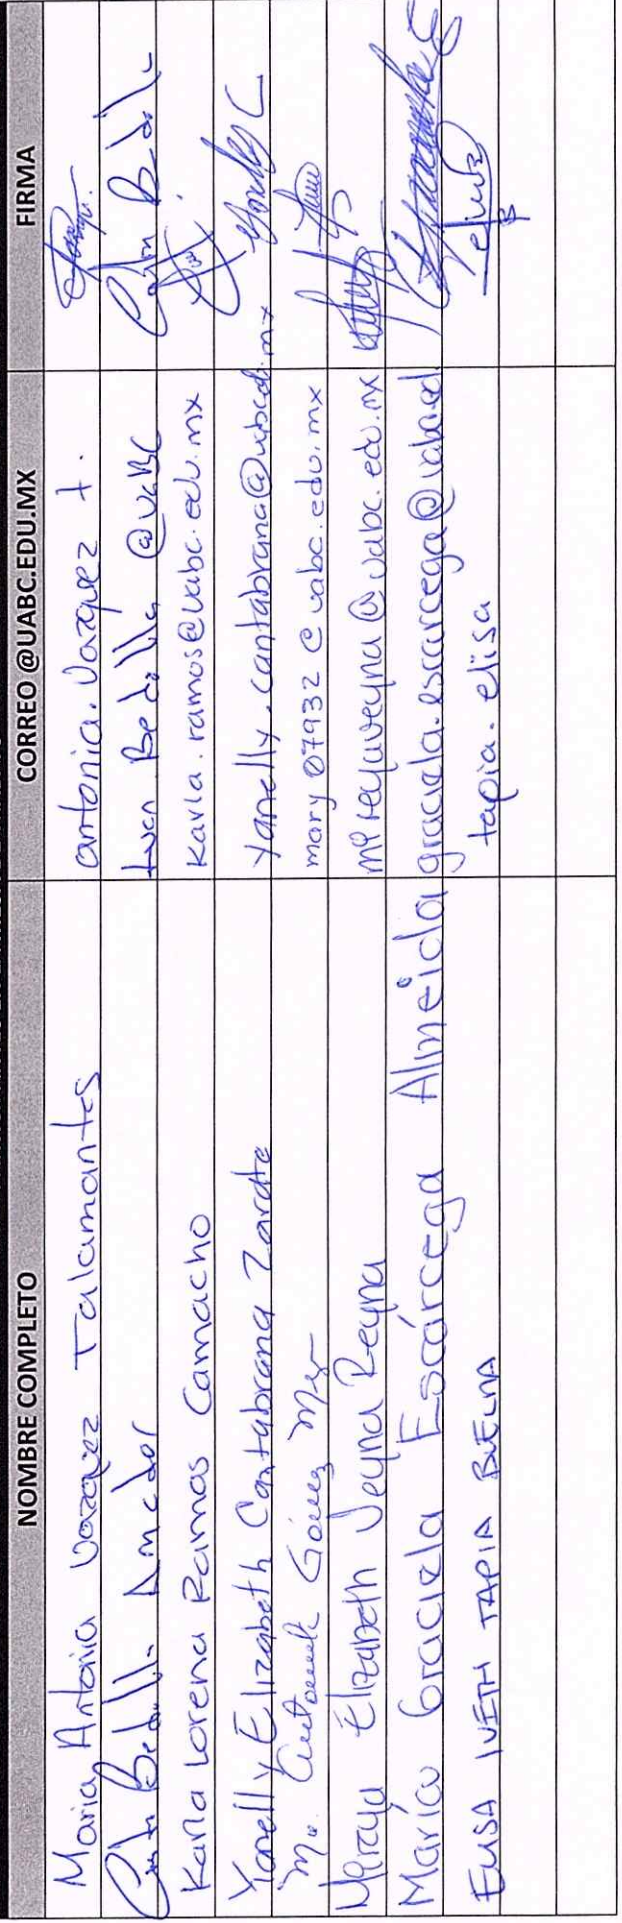 NOMBRE COMPLETO CORREO @UABC.EDU.MX FIRMA
Maria Antonia Vazquez Talamantes antonia.vazquez t.
Bedolla Amador Bedolla @UABC
Karla Lorena Ramos Camacho karla.ramos@uabc.edu.mx
Yanelly Elizabeth Cantabrana Zarate yanelly.cantabrana@uabc.edu.mx
Ma. Gómez mary07932@uabc.edu.mx
Miraya Elizabeth Veyna Reyna @uabc.edu.mx
María Graciela Escárcega Almeida graciela.escarcega@uabc.ed
ELISA IVETH TAPIA BUELNA tapia.elisa